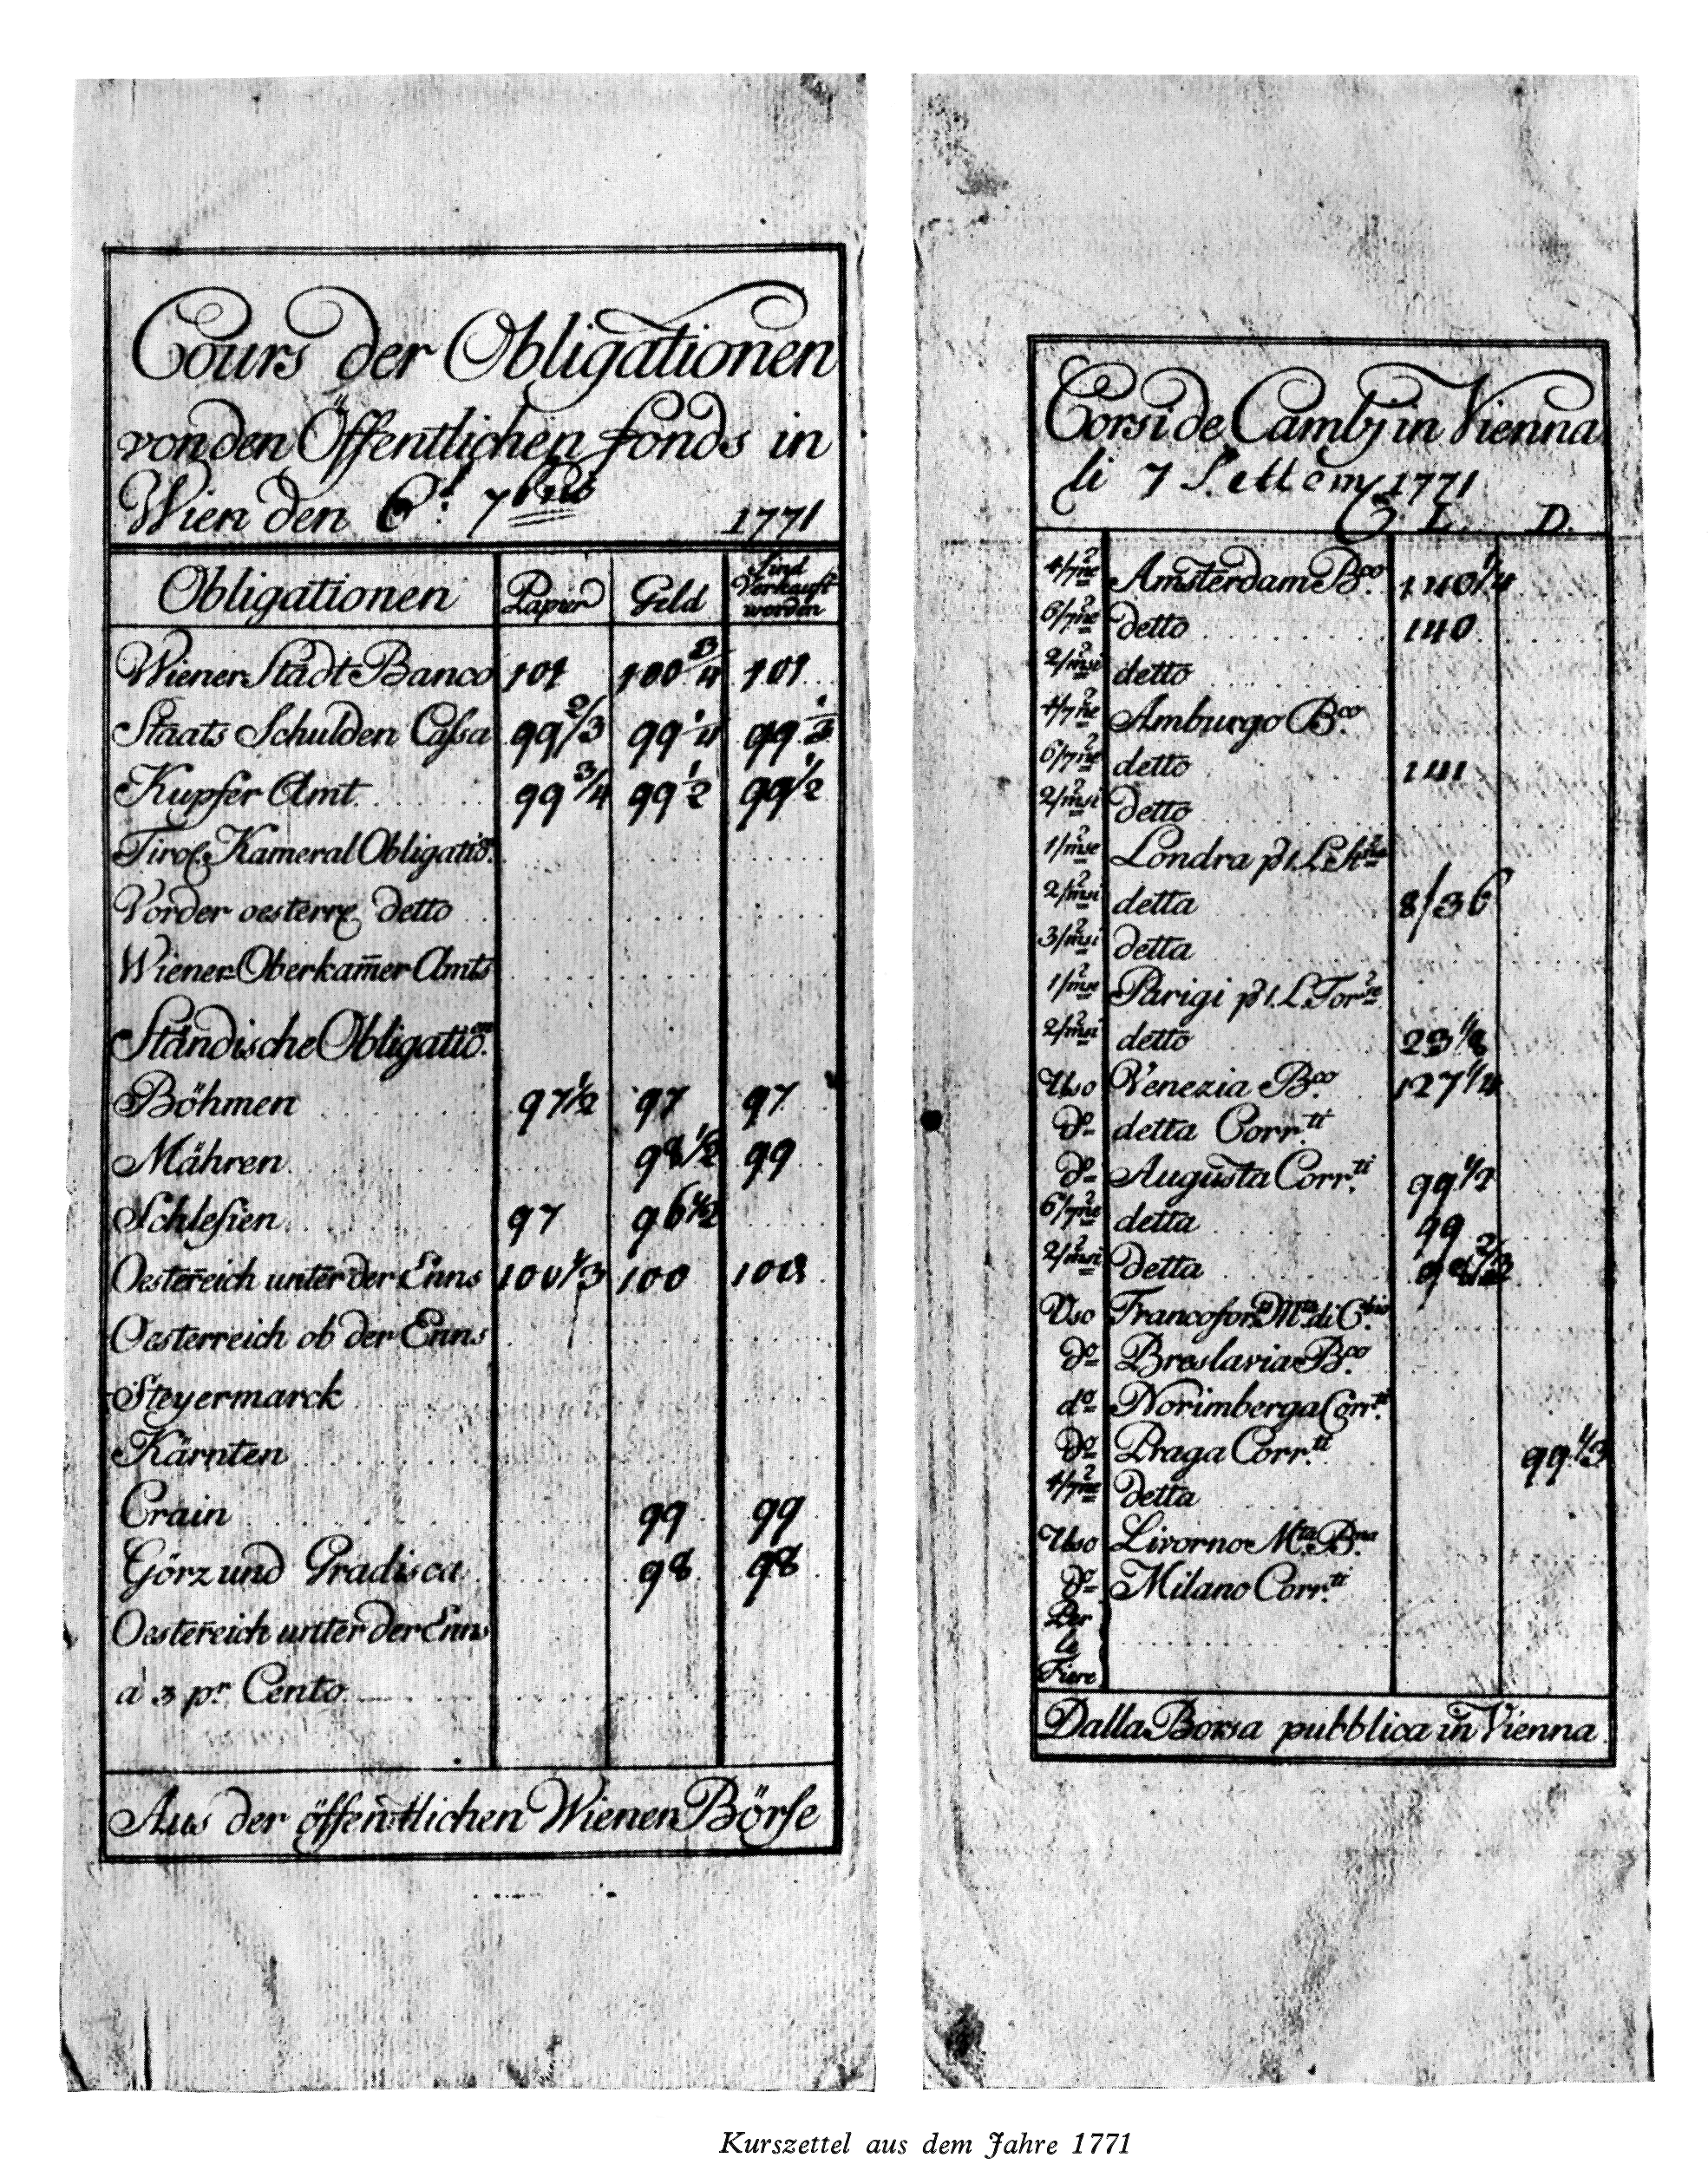 Cours der Obligationen
von den Öffentlichen fonds in
Wien den 6t 7bris 1771
Obligationen Papier Geld Sind Verkauft worden
Wiener Stadt Banco 101 100 3/4 101
Staats Schulden Cassa 99 2/3 99 1/4 99 1/2
Kupfer Amt 99 3/4 99 1/2 99 1/2
Tirol. Kameral Obligatio.
Vorder oesterre detto
Wiener Oberkam̄er Amts
Ständische Obligatio.en
Böhmen 97 1/2 97 97
Mähren 98 1/2 99
Schlesien 97 96 1/2
Oesterēich unter der Enns 100 1/3 100
Oesterreich ob der Enns
Steyermarck
Kärnten
Crain 99 99
Görz und Gradisca 98 98
Oesterēich unter der Enns
à 3 pr Cento
Aus der öffentlichen Wiener Börse
Corsi de Cambj in Vienna
li 7 Settem 1771
L. D.
4/7ne Amsterdam Bco. 140 1/4
6/7ne detto 140
2/msi detto
4/7ne Amburgo Bco.
6/7ne detto 141
2/msi detto
1/mse Londra p 1. L. St.
2/msi detta 8/36
3/msi detta
1/mse Parigi p 1. L. Tor.
2/msi detto 23 1/8
Uso Venezia Bco. 127 1/4
do detta Corr.ti
do Augusta Corr.ti 99 1/2
6/7ne detta 99
2/msi detta
Uso Francofor Mta di C.
do Breslavia Bco.
do Norimberga Corr.ti
do Praga Corr.ti 99 1/3
4/7ne detta
Uso Livorno Mta. B.na
do Milano Corr.ti
Per
le
Fiere
Dalla Borsa pubblica in Vienna
Kurszettel aus dem Jahre 1771